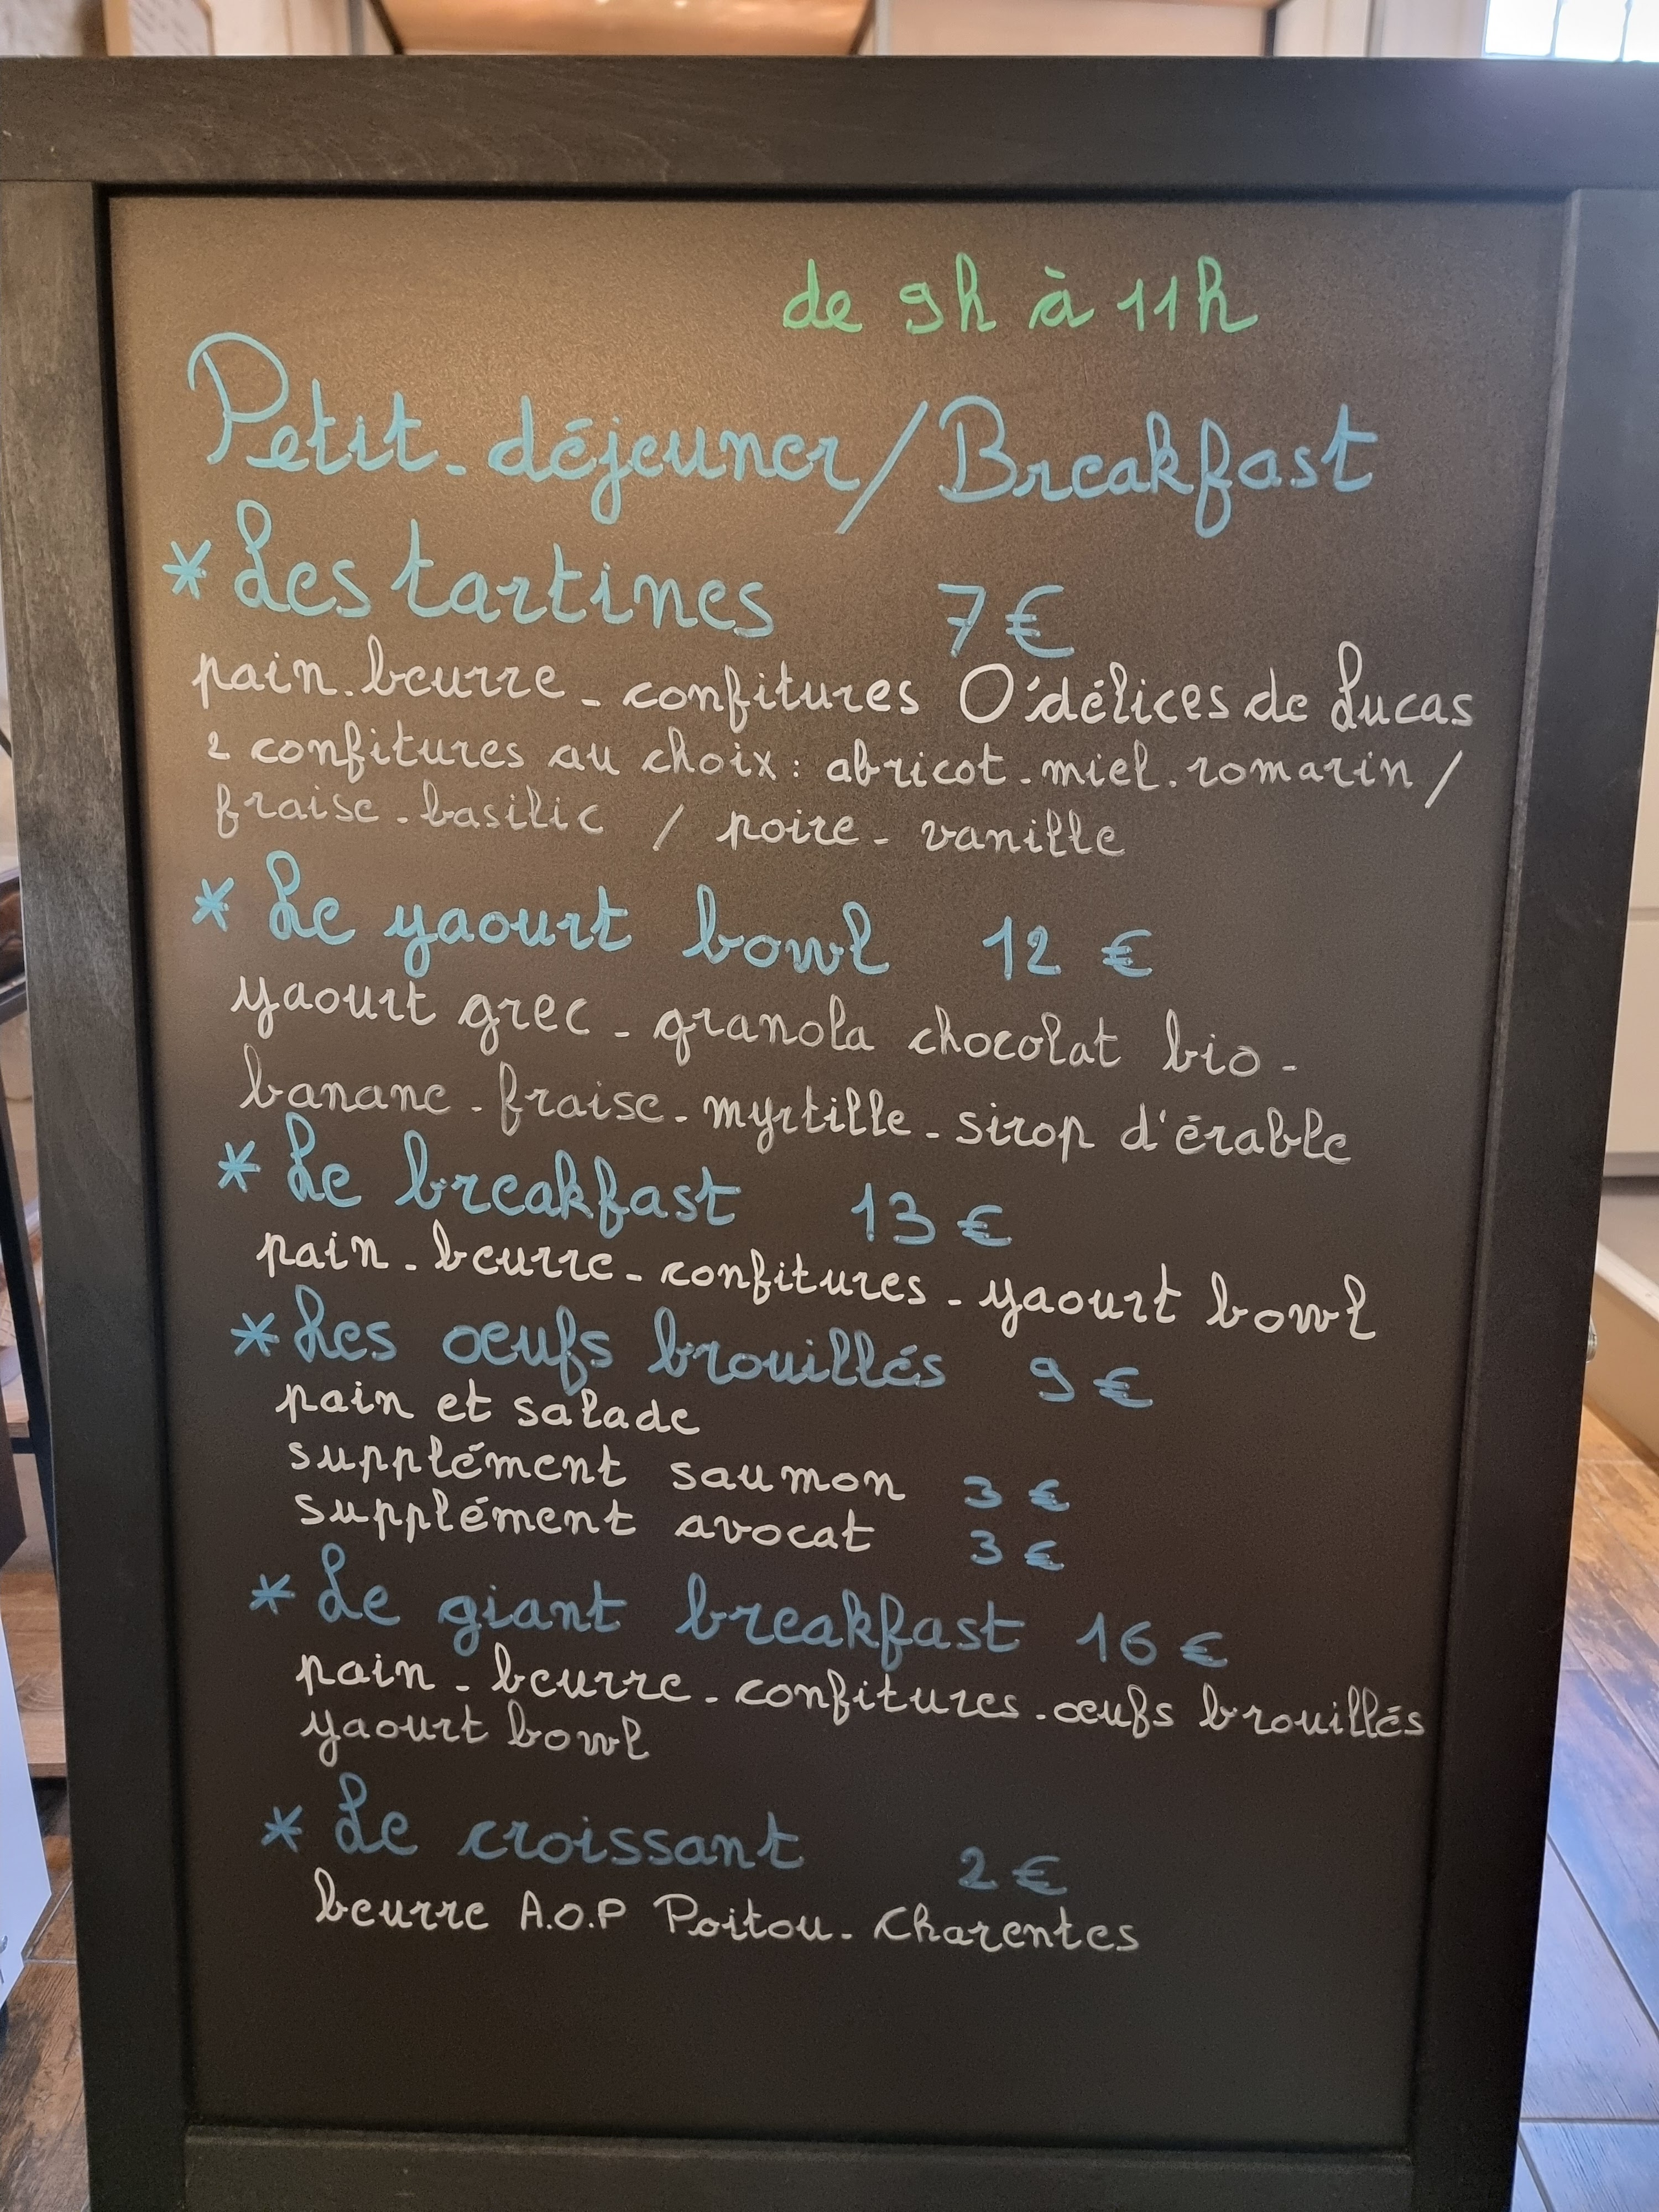 de 9h à 11h
Petit-déjeuner/Breakfast
* Les tartines 7€
pain-beurre-confitures O'délices de Lucas
2 confitures au choix: abricot-miel-romarin/
fraise-basilic / poire-vanille
* Le yaourt bowl 12 €
yaourt grec-granola chocolat bio-
banane-fraise-myrtille-sirop d'érable
* Le breakfast 13 €
pain-beurre-confitures-yaourt bowl
* Les oeufs brouillés 9 €
pain et salade
supplément saumon 3 €
supplément avocat 3 €
* Le giant breakfast 16 €
pain-beurre-confitures-oeufs brouillés
yaourt bowl
* Le croissant 2€
beurre A.O.P Poitou-Charentes